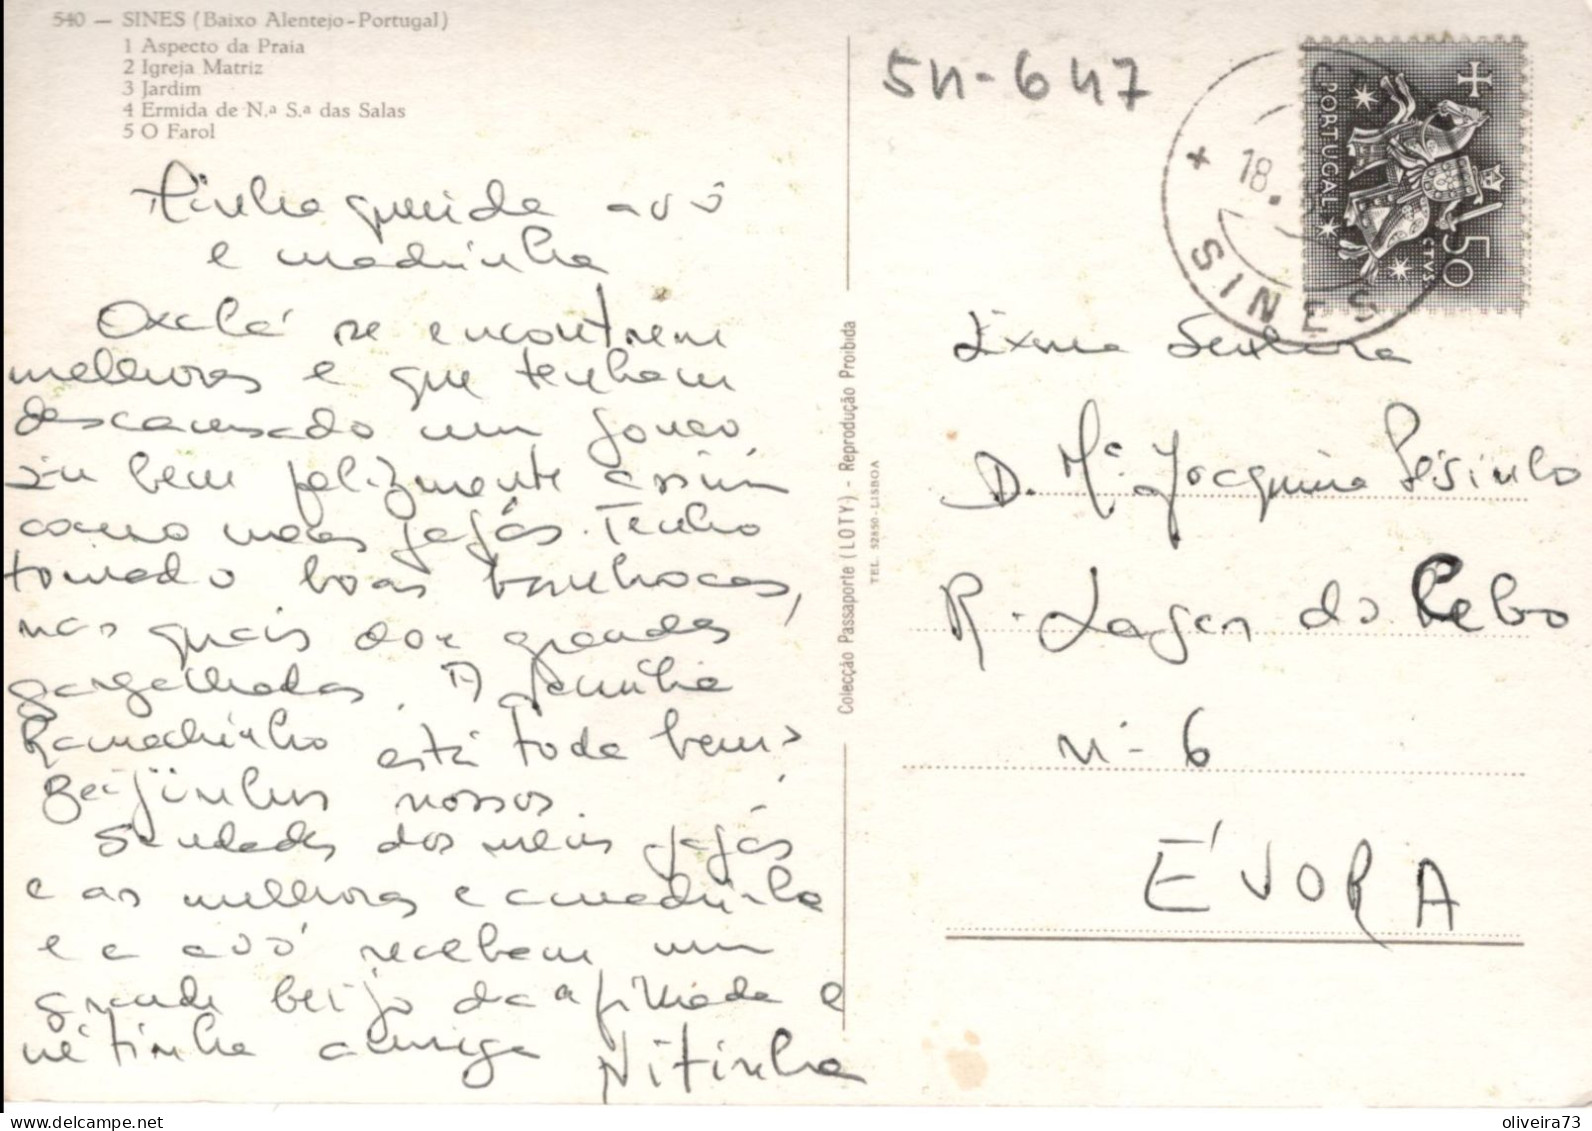 540 — SINES (Baixo Alentejo-Portugal)
1 Aspecto da Praia
2 Igreja Matriz
3 Jardim
4 Ermida de N.ª S.ª das Salas
5 O Farol
Minha querida avó
e madrinha
Oxalá se encontrem
melhores e que tenham
descansado um pouco
eu bem felizmente assim
como meus papás. Tenho
tomado boas banhocas,
nas quais dou grandes
gargalhadas. A família
Ramachinho está toda bem.
Beijinhos nossos.
Saudades dos meus papás
e as melhoras e a madrinha
e a avó recebem um
grande beijo da afilhada e
nètinha amiga Nitinha
Colecção Passaporte (LOTY) - Reprodução Proibida
TEL. 52850-LISBOA
5n-647
PORTUGAL
CTVS.
50
18.
SINES
Exma Senhora
D. Mª. Joaquina
R. Lagar do Cebo
nº 6
ÉVORA
oliveira73